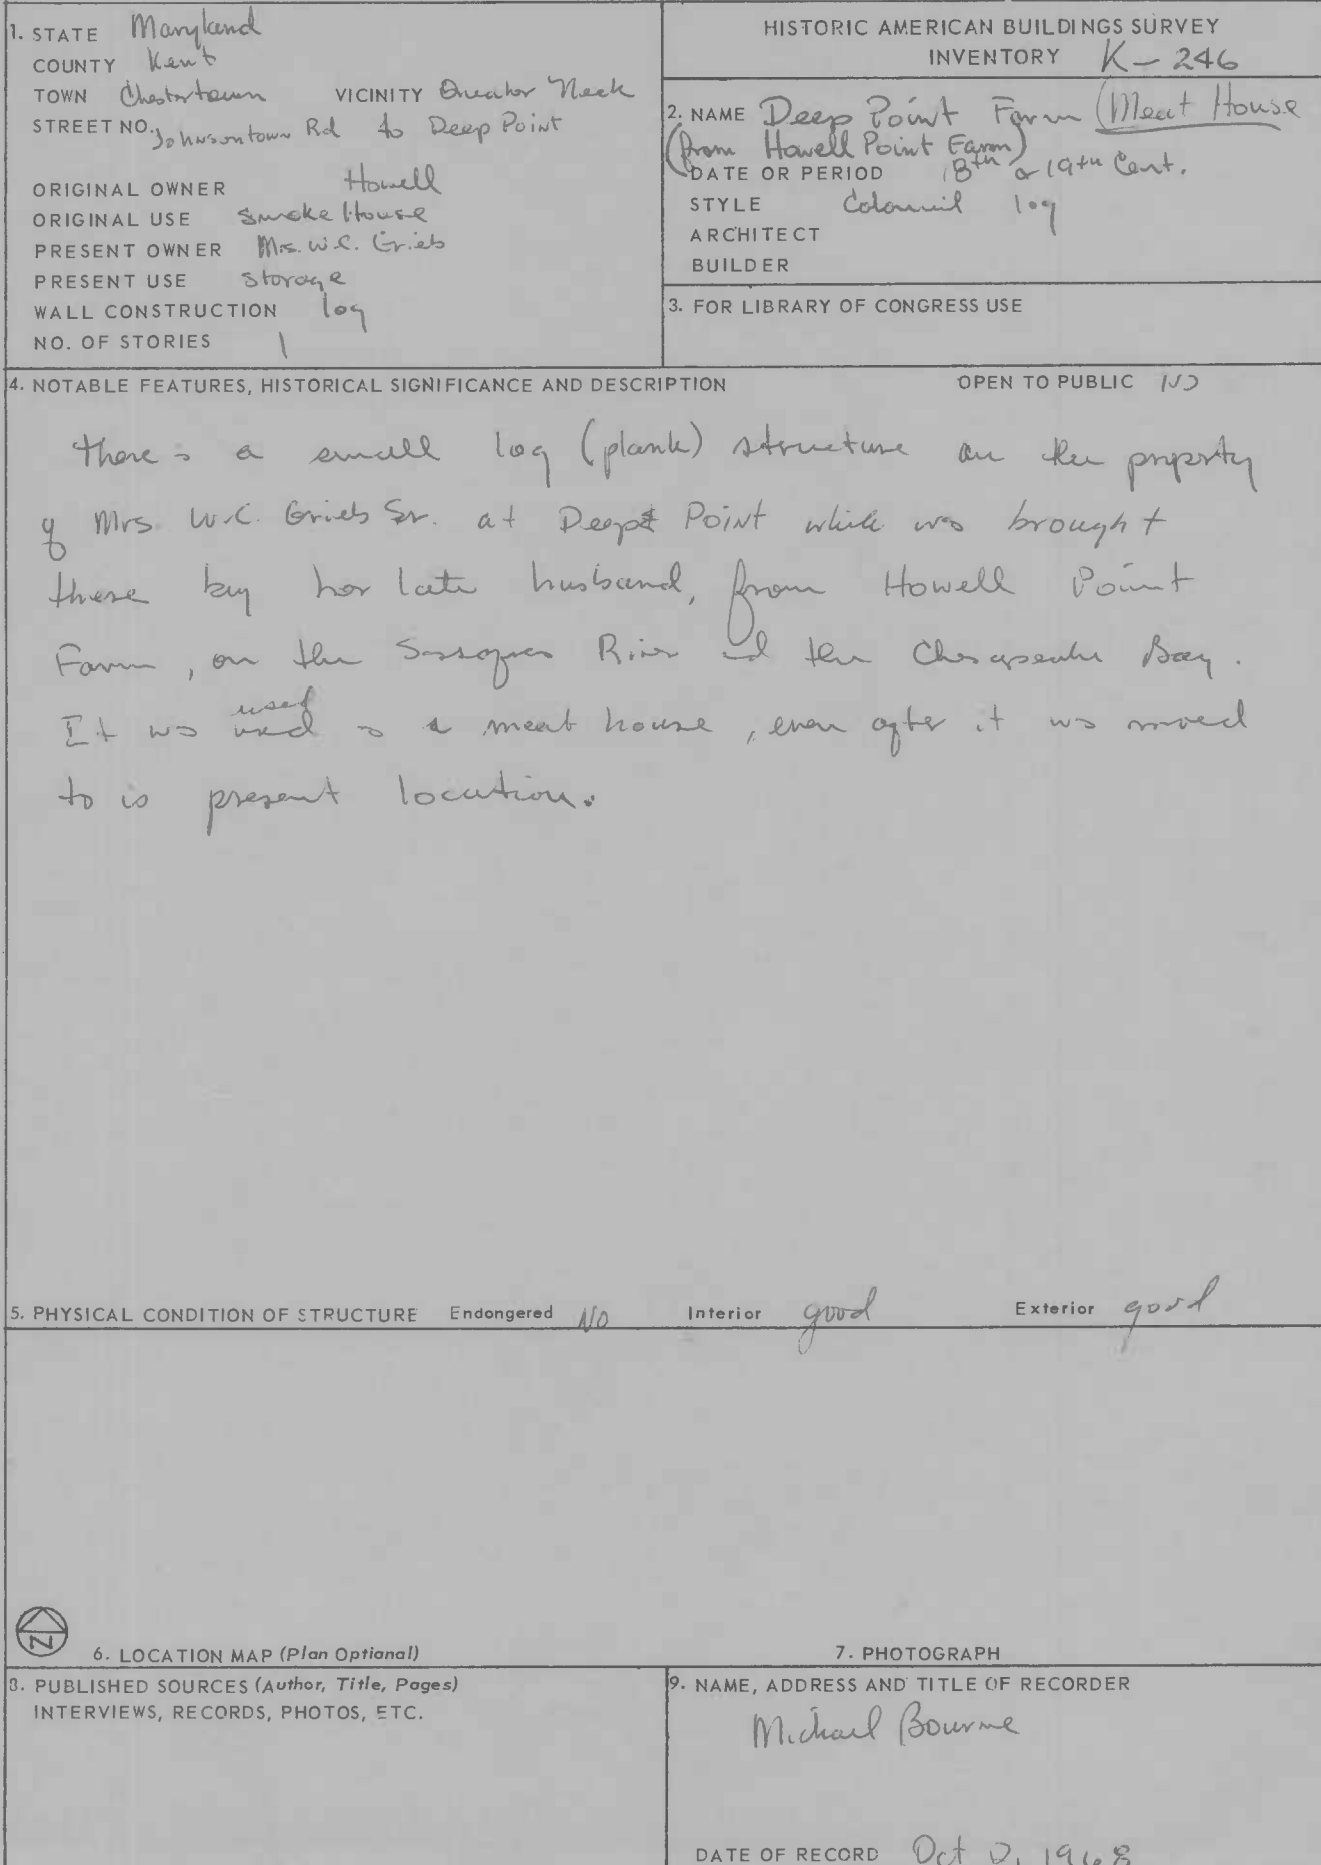 1. STATE Maryland
COUNTY Kent
TOWN Chestertown VICINITY Quaker Neck
STREET NO. Johnsontown Rd to Deep Point
ORIGINAL OWNER Howell
ORIGINAL USE Smoke House
PRESENT OWNER Mrs. W.C. Grieb
PRESENT USE Storage
WALL CONSTRUCTION log
NO. OF STORIES 1
HISTORIC AMERICAN BUILDINGS SURVEY
INVENTORY K-246
2. NAME Deep Point Farm (Meat House
(from Howell Point Farm)
DATE OR PERIOD 18th or 19th Cent.
STYLE Colonial log
ARCHITECT
BUILDER
3. FOR LIBRARY OF CONGRESS USE
4. NOTABLE FEATURES, HISTORICAL SIGNIFICANCE AND DESCRIPTION OPEN TO PUBLIC NO
There is a small log (plank) structure on the property
of Mrs. W.C. Grieb Sr. at Deep Point which was brought
there by her late husband, from Howell Point
Farm, on the Sassafras River and the Chesapeake Bay.
It was used as a meat house, even after it was moved
to is present location.
5. PHYSICAL CONDITION OF STRUCTURE Endangered NO Interior good Exterior good
N
6. LOCATION MAP (Plan Optional) 7. PHOTOGRAPH
8. PUBLISHED SOURCES (Author, Title, Pages)
INTERVIEWS, RECORDS, PHOTOS, ETC.
9. NAME, ADDRESS AND TITLE OF RECORDER
Michael Bourne
DATE OF RECORD Oct 1968